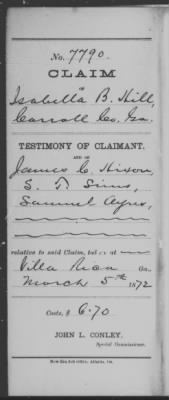 No. 7790.
CLAIM
OF
Isabella B. Hill,
Carroll Co. Ga.
TESTIMONY OF CLAIMANT.
AND OF
James C. Hixon,
S. T. Sims,
Samuel Ayres,
relative to said Claim, taken at
Villa Rica Ga.
March 5th 1872
Costs, $ 6.70
JOHN L. CONLEY,
Special Commissioner.
New Era Job Office, Atlanta, Ga.